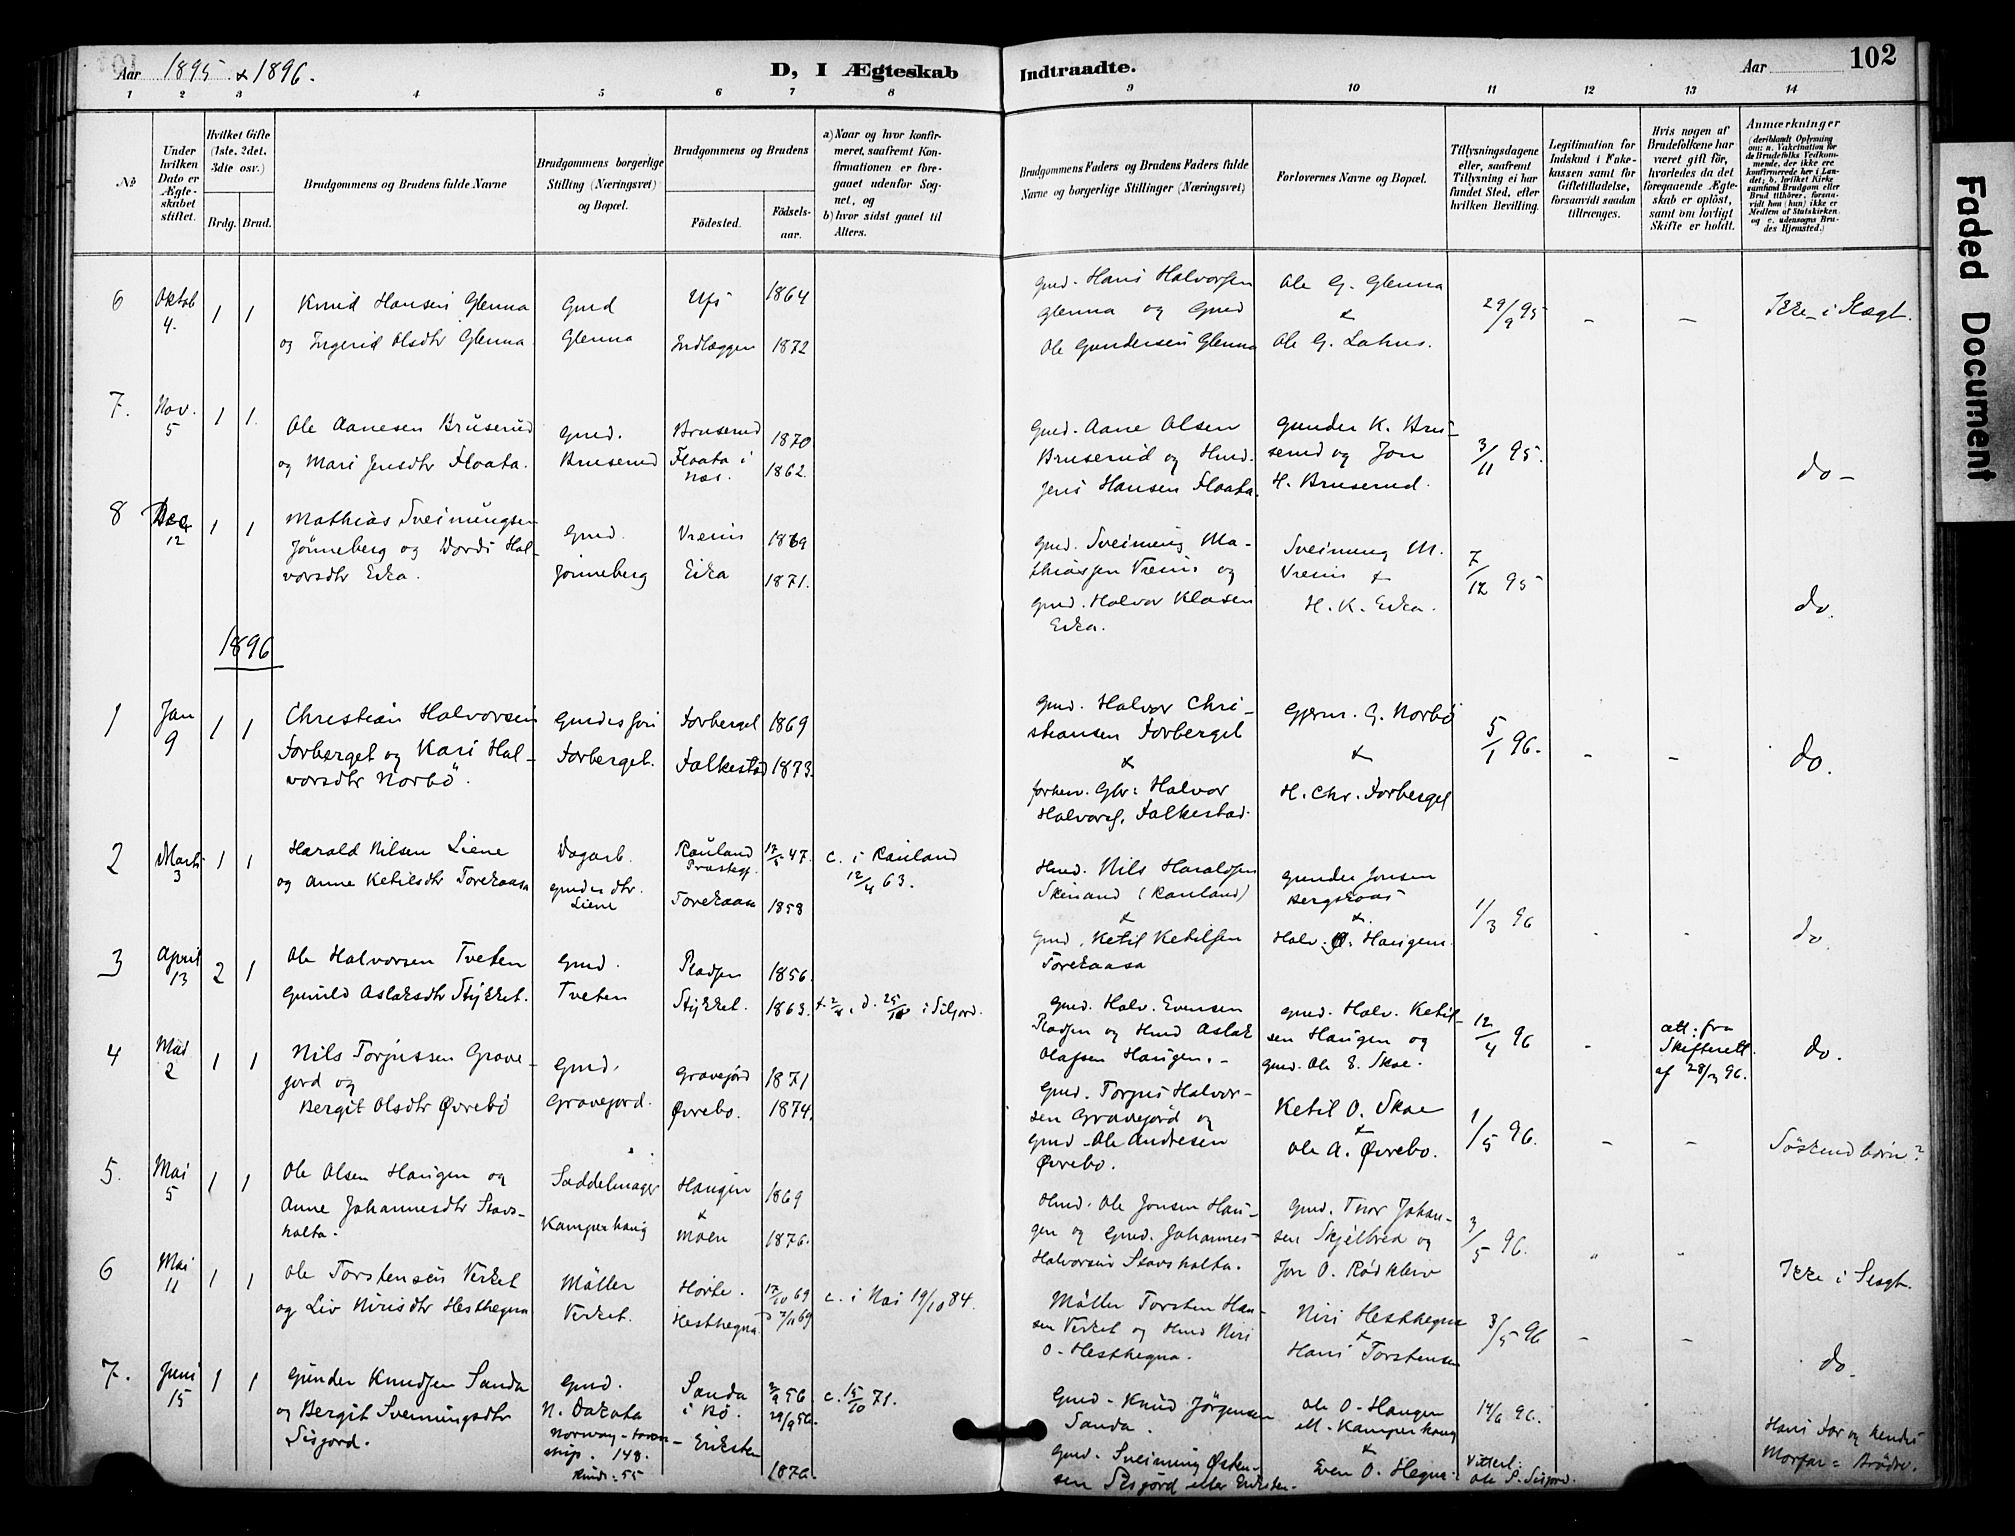 Aar 1895 & 1896.
D, I Ægteskab Indtraadte.
Aar 102
1 2 3 4 5 6 7 8 9 10 11 12 13 14
No
Under hvilken Dato er Ægteskabet stiftet.
Hvilket Gifte (1ste, 2det, 3die osv.)
Brdg. Brud.
Brudgommens og Brudens fulde Navne
Brudgommens borgerlige Stilling (Næringsvei) og Bopæl.
Brudgommens og Brudens
Fødested.
Fødselsaar.
a) Naar og hvor konfirmeret, saafremt Konfirmationen er foregaaet udenfor Sognet, og
b) hvor sidst gaaet til Alters.
Brudgommens Faders og Brudens Faders fulde Navne og borgerlige Stillinger (Næringsvei)
Forlovernes Navne og Bopæl.
Tillysningsdagene eller, saafremt Tillysning ei har fundet Sted, efter hvilken Bevilling.
Legitimation for Indskud i Enkekassen samt for Giftetilladelse, forsaavidt saadan tiltrænges.
Hvis nogen af Brudefolkene har været gift før, hvorledes da det foregaaende Ægteskab er opløst, samt om lovligt Skifte er holdt.
Anmærkninger
(deriblandt Oplysning om: a. Vakcination for de Brudefolks Vedkommende, der ikke ere konfirmerede her i Landet; b. hvilket Kirkesamfund Brudgom eller Brud tilhører, forsaavidt han (hun) ikke er Medlem af Statskirken, og c. udensogns Brudes Hjemsted.)
6 Oktob 4. 1 1
Knud Hansen Glenna
og Ingerid Olsdtr Glenna.
Gmd
Glenna
Ufs 1864
Indlæggen 1872
Gmd. Hans Halvorsen
Glenna og Gmd
Ole Gundersen Glenna
Ole G. Glenna
&
Ole G. Lahus.
29/9 95
– –
Ikke i Slægt.
7. Nov. 5 1 1.
Ole Aanesen Bruserud
og Mari Jensdtr Floata.
Gmd.
Bruserud
Bruserud 1870
Floata i Næs. 1862.
Gmd. Aane Olsen
Bruserud og Hmd.
Jens Hansen Floata.
Gunder K. Bru-
serud og Jon
H. Bruserud.
3/11 95.
do –
8 Dec 12 1 1
Mathias Sveinungsen
Jönneberg og Dordi Hal-
vorsdtr Eika.
Gmd.
Jönneberg
Vreim 1869
Eika 1871.
Gmd. Sveinung Ma-
thiassen Vreim og
Gmd. Halvor Klasen
Eika.
Sveinung M.
Vreim &
H. K. Eika.
7/12 95
do.
1896
1 Jan 9 1 1
Christian Halvorsen
Forberget og Kari Hal-
vorsdtr Norbö.
Gmdssön
Forberget.
Forberget 1869
Falkestad 1873.
Gmd. Halvor Chri-
stiansen Forberget
&
forhen. Gbr: Halvor
Halvors. Falkestad.
Gjerm. G. Norbö
&
H. Chr. Forberget
5/1 96.
– –
do.
2 Marts 3 1 1
Harald Nilsen Liene
og Anne Ketilsdtr Torekaasa
Dagarb.
Gmdsdtr.
Liene
Rauland Præstegj. 12/5 47.
Torekaasa 1858
c. i Rauland
12/4 63.
Hmd. Nils Haraldsen
Skinand (Rauland)
&
Gmd. Ketil Ketilsen
Torekaasa
Gunder Jonsen
Bergskaas
&
Halv. O. Haugen.
1/3 96
do.
3 April 13 2 1
Ole Halvorsen Tveten
Gunild Aslaksdtr Stykket.
Gmd.
Tveten
Rodjen 1856.
Stykket. 1863.
i Siljord.
Gmd. Halv. Evensen
Rodjen og Hmd Aslak
Olafsen Haugen. –
Gmd. Halv. Ketil-
sen Haugen og
Gmd. Ole E. Skoe.
12/4 96
–
att. fra
Skifterett.
af 28/3 96.
do.
4 Mai 2 1 1
Nils Torjussen Grave-
jord og
Bergit Olsdtr Øvrebö
Gmd.
Gravejord.
Gravejord 1871
Øvrebo. 1874.
Gmd. Torjus Halvor-
sen Gravejord og
Gmd. Ole Andresen
Øvrebo.
Ketil O. Skoe
&
Ole A. Øvrebo.
1/5 96.
– –
Söskendbörn?
5. Mai 5 1 1
Ole Olsen Haugen og
Anne Johannesdtr Stavs-
holta.
Saddelmager
Kamperhaug
Haugen 1869
&
Moen 1876.
Hmd. Ole Jonsen Hau-
gen og Gmd. Johannes
Halvorsen Stavsholta.
Gmd. Thor Johan-
sen Skjelbred og
Jon O. Rödkleiv
3/5 96.
Ikke i Slegt.
6 Mai 11 1 1
Ole Torstensen Verket
og Liv Nirisdtr Hesthegna
Möller
Verket.
Hörte. 17/10 69
Hesthegna 7/11 69
c. i Mai 19/10 84.
Möller Torsten Han-
sen Verket og Hmd Niri
O. Hesthegna.
Niri Hesthegna
&
Hans Torstensen
3/5 96
– –
do.
7. Juni 15 1 1
Gunder Knudsen Sanda
og Bergit Sveinungsdtr
Sisjord.
Gmd.
N. Dakota
Norway-town-
ship. 148.
55
Sanda i Bö.
Eriksten
1876.
c. 15/10 71.
Gmd. Knud Jörgensen
Sanda.
Gmd. Sveinung Østen-
sen Sisjord eller Eriksten.
Ole O. Haugen
ell. Kamperhaug
&
Even O. Hegna.
14/6 96.
Vitterl:
Ole S. Sisjord.
Hans Far og hendes
Morfar = Brödre.
Faded Document